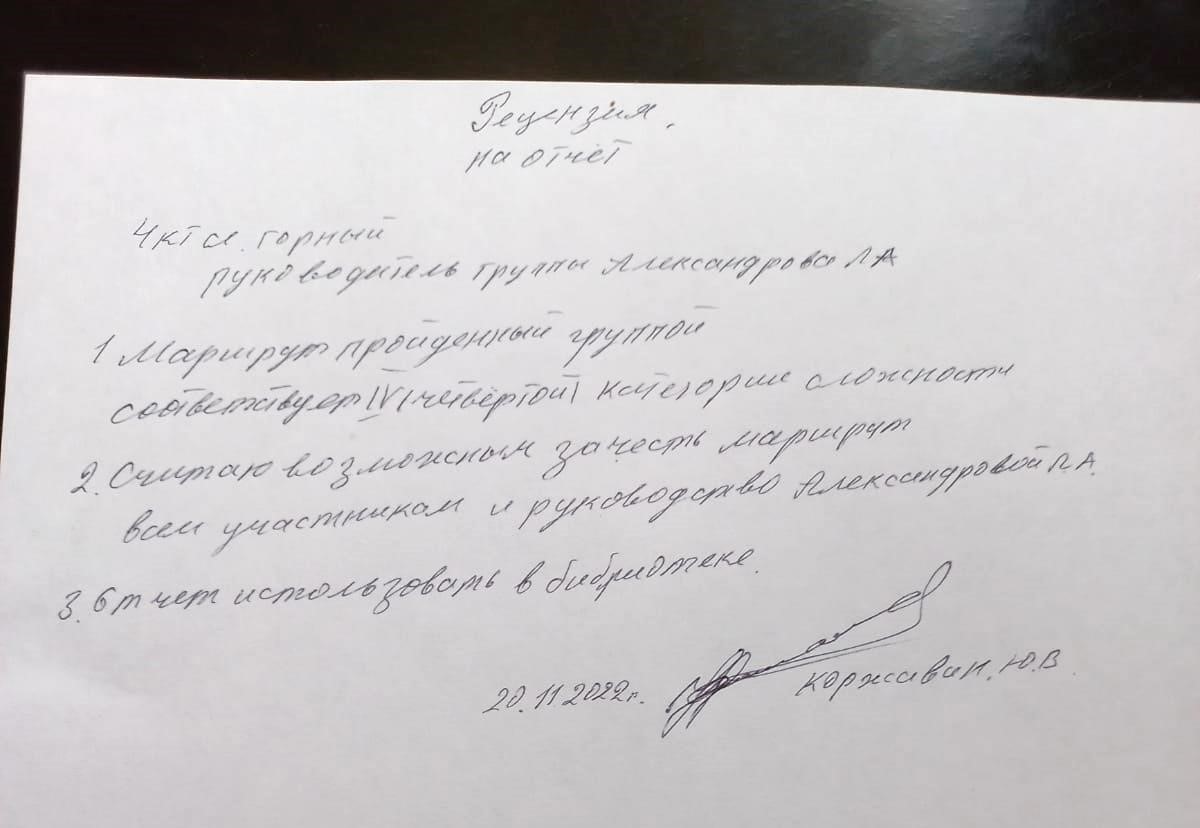 Рецензия.
на отчёт
4 кт сл. горный
руководитель группы Александрова Л А
1 Маршрут пройденный группой
соответствует IV (четвёртой) категории сложности
2. Считаю возможным зачесть маршрут
всем участникам и руководство Александровой Л. А.
3. Отчет использовать в библиотеке.
20.11.2022г. Коржавин. Ю. В.